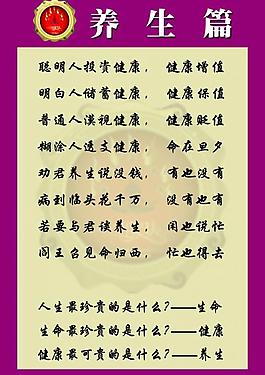 养生篇
聪明人投资健康， 健康增值
明白人储蓄健康， 健康保值
普通人漠视健康， 健康贬值
糊涂人透支健康， 命在旦夕
劝君养生说没钱， 有也没有
病到临头花千万， 没有也有
若要与君谈养生， 闲也说忙
阎王召见命归西， 忙也得去
人生最珍贵的是什么?——生命
生命最珍贵的是什么?——健康
健康最可贵的是什么?——养生